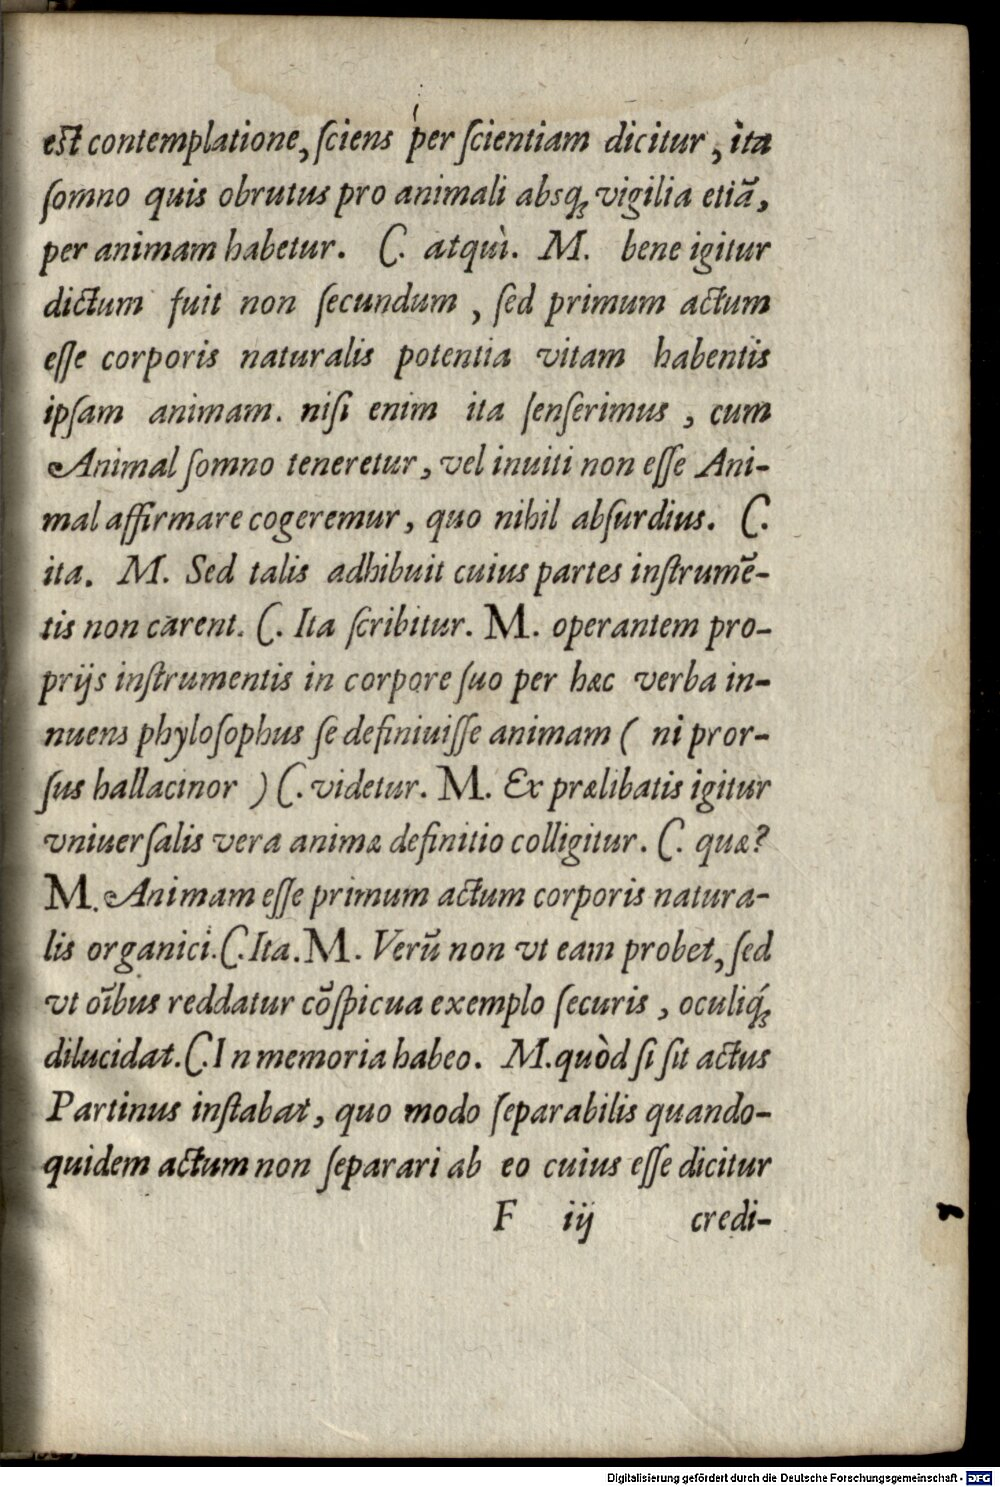 est contemplatione, ſciens per ſcientiam dicitur, ìta
ſomno quis obrutus pro animali absq; vigilia etiã,
per animam habetur. C. atquì. M. bene igitur
dictum fuit non ſecundum, ſed primum actum
eſſe corporis naturalis potentia vitam habentis
ipſam animam. niſi enim ita ſenſerimus, cum
Animal ſomno teneretur, vel inuiti non eſſe Ani-
mal affirmare cogeremur, quo nihil abſurdius. C.
ita. M. Sed talis adhibuit cuius partes inſtrumẽ-
tis non carent. C. Ita ſcribitur. M. operantem pro-
prijs inſtrumentis in corpore ſuo per hæc verba in-
nuens phyloſophus ſe definiuiſſe animam ( ni pror-
ſus hallacinor ) C. videtur. M. Ex prælibatis igitur
vniuerſalis vera animæ definitio colligitur. C. quæ?
M. Animam eſſe primum actum corporis natura-
lis organici. C. Ita. M. Verũ non vt eam probet, ſed
vt oĩbus reddatur cõſpicua exemplo ſecuris, oculiq́;
dilucidat. C. In memoria habeo. M. quòd ſi ſit actus
Partinus inſtabat, quo modo ſeparabilis quando-
quidem actum non ſeparari ab eo cuius eſſe dicitur
F iij credi-
Digitalisierung gefördert durch die Deutsche Forschungsgemeinschaft - DFG